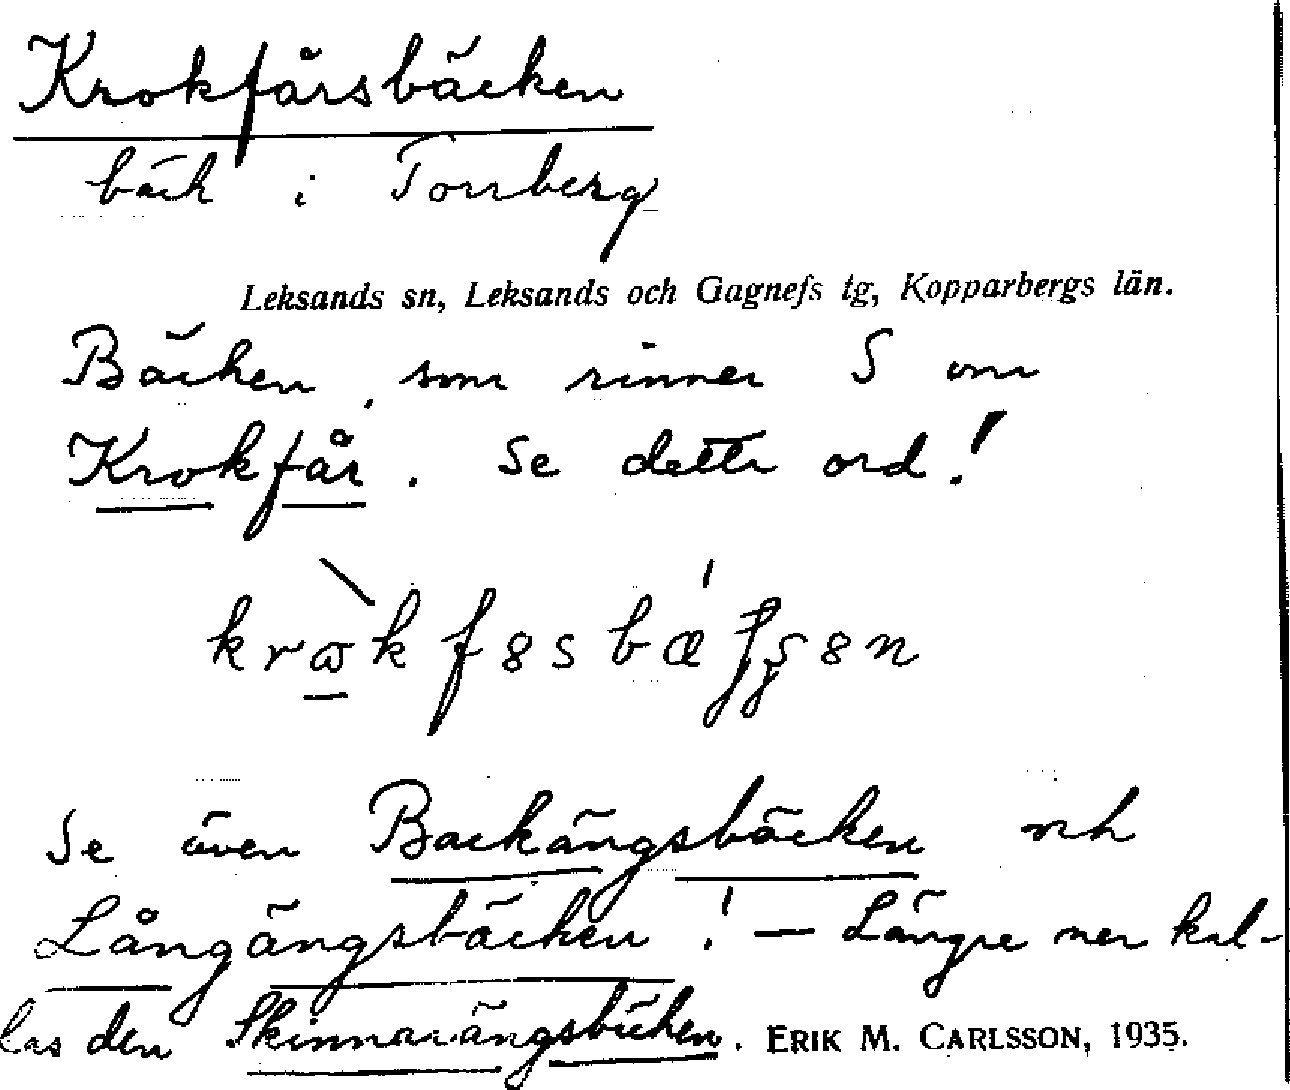 Krokfårsbäcken
bäck i Torrberg
Leksands sn, Leksands och Gagnefs tg, Kopparbergs län.
Bäcken, som rinner S om
Krokfår. Se detta ord!
Se även Backängsbäcken och
Långängsbäcken! — Längre ner kal-
las den Skinnarängsbäcken. ERIK M. CARLSSON, 1935.